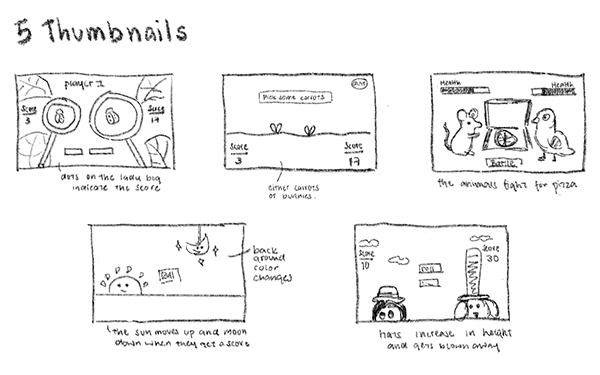 5 Thumbnails
player 1
Score
3
Score
17
dots on the lady bug
indicate the score
Pick some carrots
Score
3
Score
17
either carrots
or bunnies.
Health
Health
Battle
the animals fight for pizza
Roll
back
around
color
changes
the sun moves up and moon
down when they get a score
Score
10
Score
30
roll
hats increase in height
and gets blown away